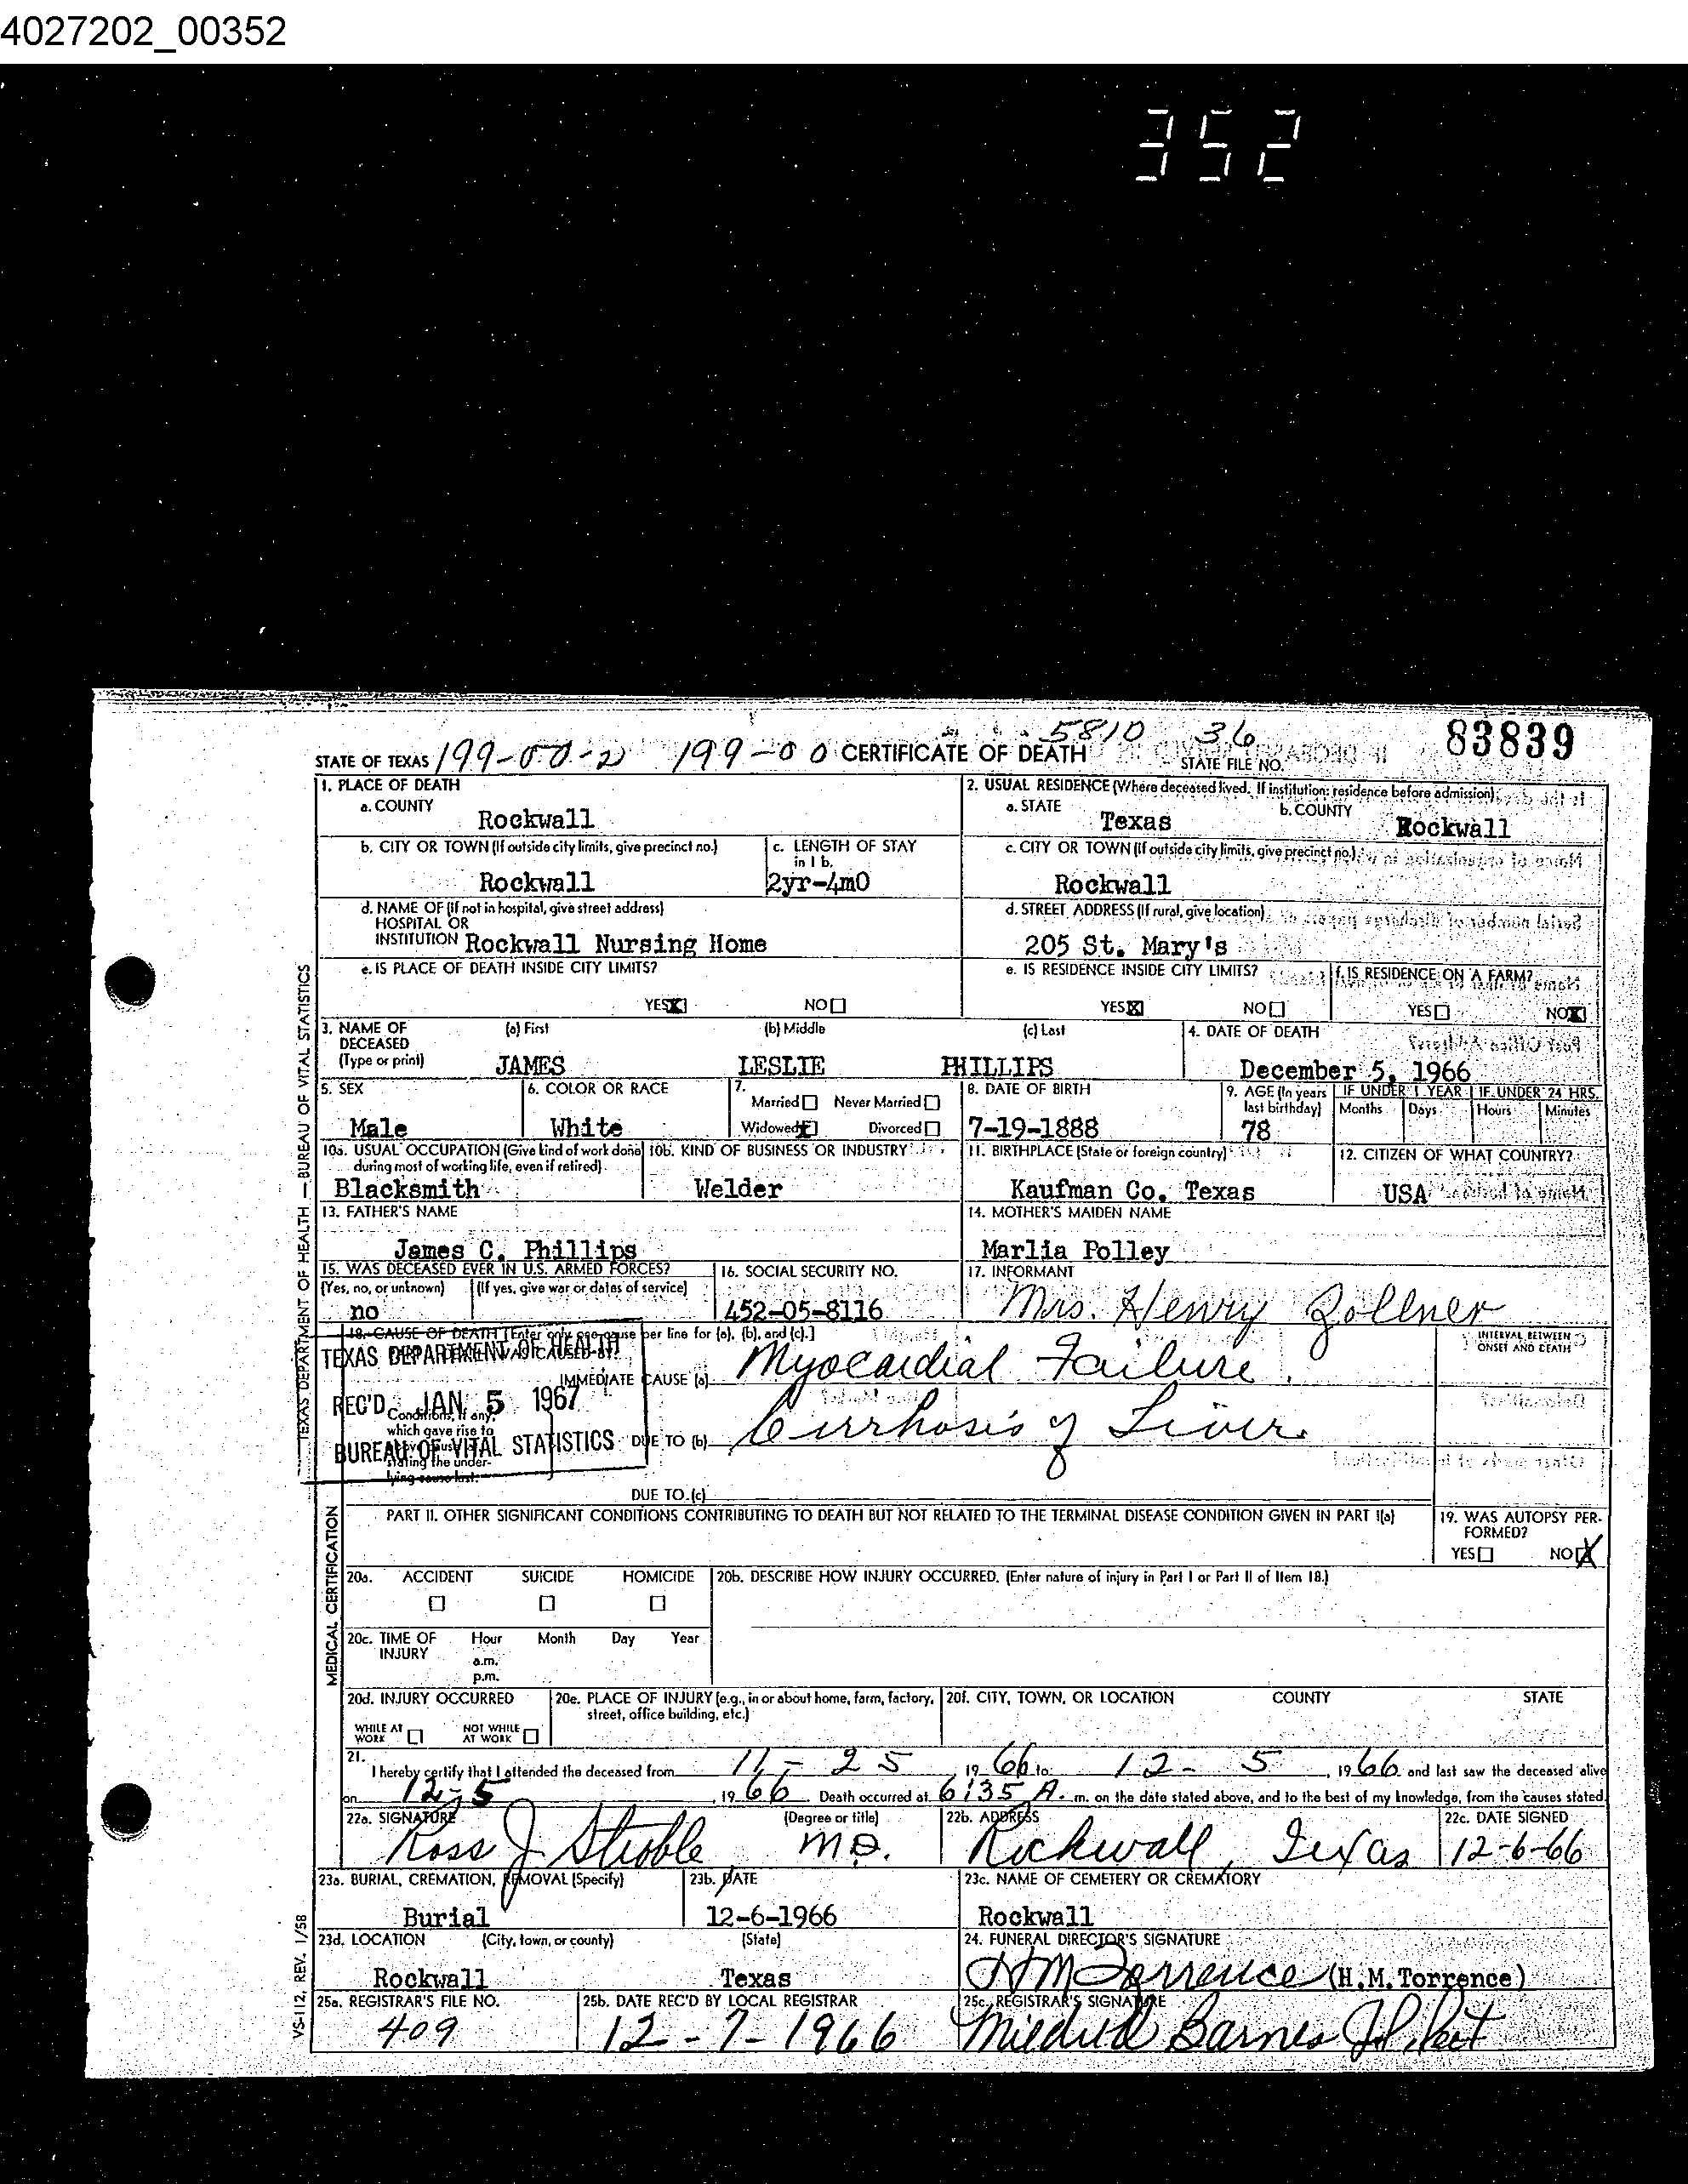 4027202_00352
352
5810 36
STATE OF TEXAS 199-00-2 199-00 CERTIFICATE OF DEATH STATE FILE NO. 83839
1. PLACE OF DEATH
a. COUNTY
Rockwall
2. USUAL RESIDENCE (Where deceased lived. If institution: residence before admission)
a. STATE
Texas
b. COUNTY
Rockwall
b. CITY OR TOWN (If outside city limits, give precinct no.)
Rockwall
c. LENGTH OF STAY
in 1 b.
2yr-4mO
c. CITY OR TOWN (If outside city limits, give precinct no.)
Rockwall
d. NAME OF (If not in hospital, give street address)
HOSPITAL OR
INSTITUTION Rockwall Nursing Home
d. STREET ADDRESS (If rural, give location)
205 St. Mary's
e. IS PLACE OF DEATH INSIDE CITY LIMITS?
YES X NO
e. IS RESIDENCE INSIDE CITY LIMITS?
YES X NO
f. IS RESIDENCE ON A FARM?
YES NO X
3. NAME OF
DECEASED
(Type or print)
(a) First (b) Middle (c) Last
JAMES LESLIE PHILLIPS
4. DATE OF DEATH
December 5, 1966
5. SEX
Male
6. COLOR OR RACE
White
7.
Married Never Married
Widowed X Divorced
8. DATE OF BIRTH
7-19-1888
9. AGE (In years
last birthday)
78
IF UNDER 1 YEAR
Months Days
IF UNDER 24 HRS.
Hours Minutes
10a. USUAL OCCUPATION (Give kind of work done
during most of working life, even if retired)
Blacksmith
10b. KIND OF BUSINESS OR INDUSTRY
Welder
11. BIRTHPLACE (State or foreign country)
Kaufman Co. Texas
12. CITIZEN OF WHAT COUNTRY?
USA
13. FATHER'S NAME
James C. Phillips
14. MOTHER'S MAIDEN NAME
Marlia Polley
15. WAS DECEASED EVER IN U.S. ARMED FORCES?
(Yes, no, or unknown) (If yes, give war or dates of service)
no
16. SOCIAL SECURITY NO.
452-05-8116
17. INFORMANT
Mrs. Henry Zollner
18. CAUSE OF DEATH [Enter only one cause per line for (a), (b), and (c).]
INTERVAL BETWEEN
ONSET AND DEATH
TEXAS DEPARTMENT OF HEALTH
REC'D JAN 5 1967
BUREAU OF VITAL STATISTICS
IMMEDIATE CAUSE (a) Myocardial Failure
Conditions, if any,
which gave rise to
stating the under-
lying cause last.
DUE TO (b) Cirrhosis of Liver
DUE TO (c)
PART II. OTHER SIGNIFICANT CONDITIONS CONTRIBUTING TO DEATH BUT NOT RELATED TO THE TERMINAL DISEASE CONDITION GIVEN IN PART I(a)
19. WAS AUTOPSY PER-
FORMED?
YES NO X
20a. ACCIDENT SUICIDE HOMICIDE
20b. DESCRIBE HOW INJURY OCCURRED. (Enter nature of injury in Part I or Part II of Item 18.)
20c. TIME OF
INJURY
Hour Month Day Year
a.m.
p.m.
20d. INJURY OCCURRED
WHILE AT
WORK
NOT WHILE
AT WORK
20e. PLACE OF INJURY (e.g., in or about home, farm, factory,
street, office building, etc.)
20f. CITY, TOWN, OR LOCATION COUNTY STATE
21.
I hereby certify that I attended the deceased from 11-25 1966 to 12-5, 1966 and last saw the deceased alive
on 12-5, 1966. Death occurred at 6:35 A. m. on the date stated above, and to the best of my knowledge, from the causes stated.
22a. SIGNATURE (Degree or title)
Ross J Struble M.D.
22b. ADDRESS
Rockwall, Texas
22c. DATE SIGNED
12-6-66
23a. BURIAL, CREMATION, REMOVAL (Specify)
Burial
23b. DATE
12-6-1966
23c. NAME OF CEMETERY OR CREMATORY
Rockwall
23d. LOCATION (City, town, or county) (State)
Rockwall Texas
24. FUNERAL DIRECTOR'S SIGNATURE
HM Torrence (H.M. Torrence)
25a. REGISTRAR'S FILE NO.
409
25b. DATE REC'D BY LOCAL REGISTRAR
12-7-1966
25c. REGISTRAR'S SIGNATURE
Mildred Barnes
TEXAS DEPARTMENT OF HEALTH — BUREAU OF VITAL STATISTICS
MEDICAL CERTIFICATION
VS-112, REV. 1/58